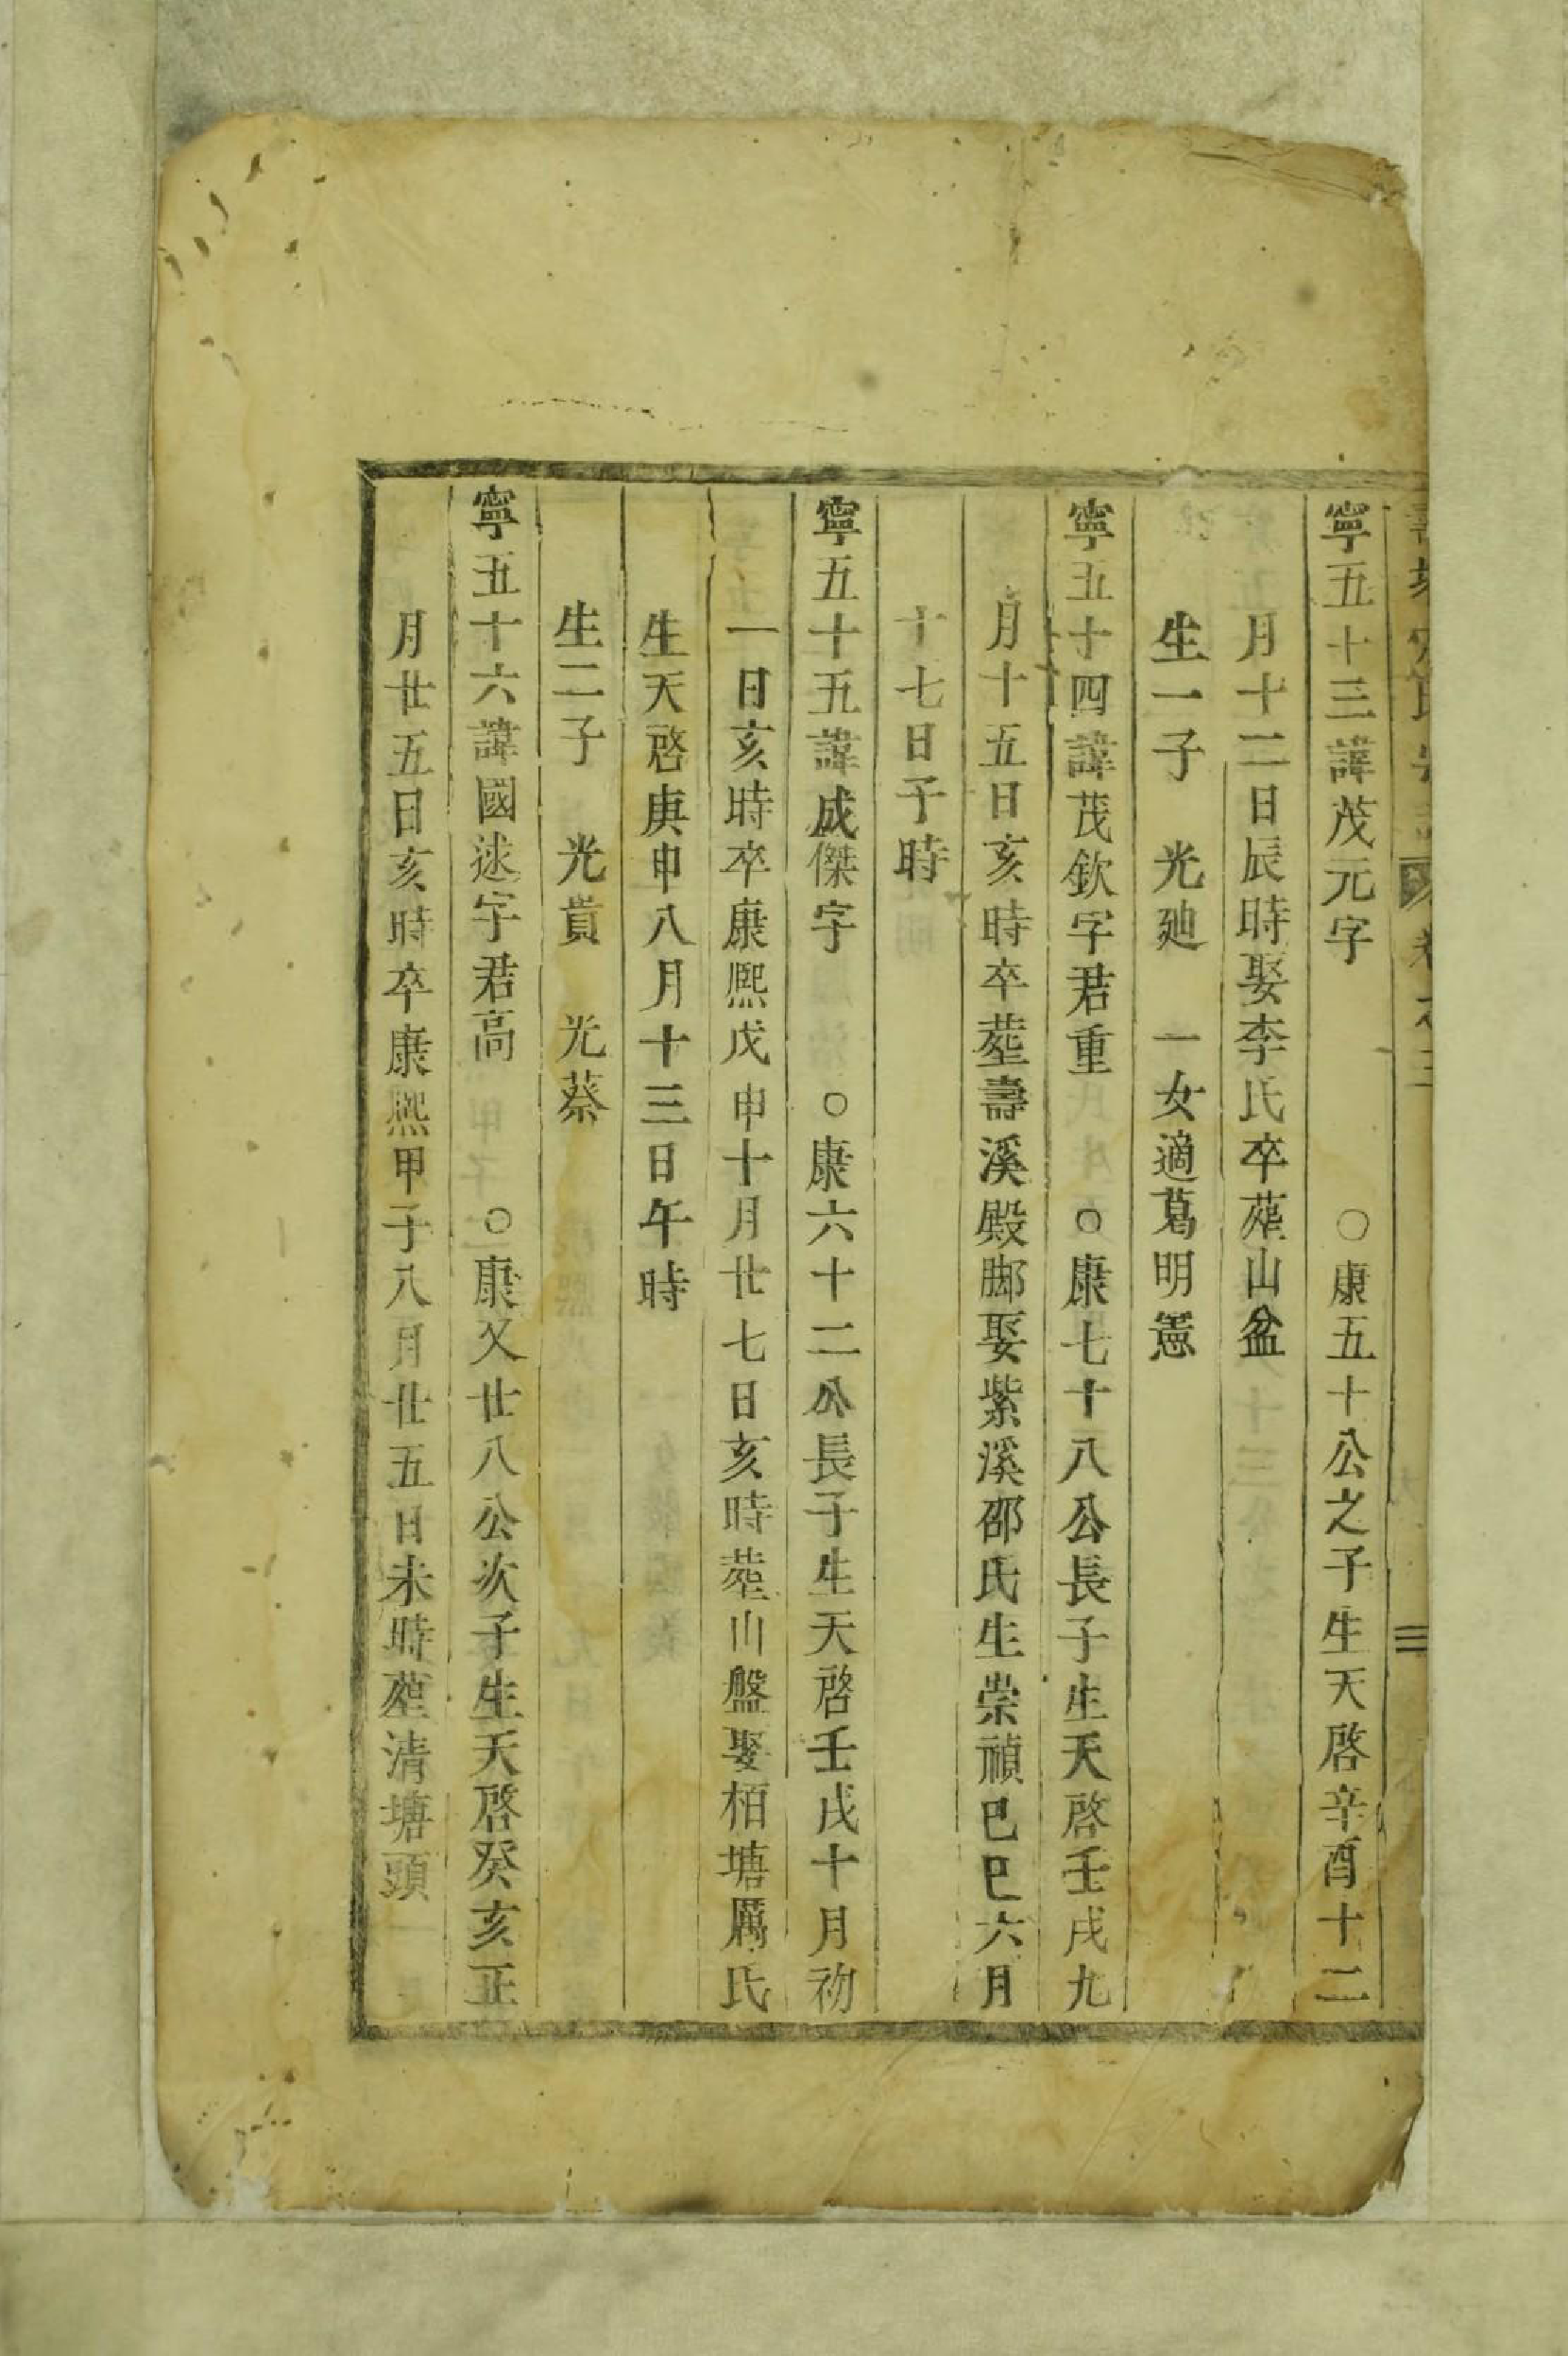 寧五十三諱茂元字　○康五十公之子生天啓辛酉十二
月十二日辰時娶李氏卒塟山盆
生一子　光廸　一女適葛明憲
寧五十四諱茂欽字君重　○康七十八公長子生天啓壬戌九
月十五日亥時卒塟壽溪殿脚娶紫溪邵氏生崇禎己巳六月
十七日子時
寧五十五諱成傑字　○康六十二公長子生天啓壬戌十月初
一日亥時卒康熙戊申十月廿七日亥時塟山盤娶栢塘厲氏
生天啓庚申八月十三日午時
生二子　光貴　光蔡
寧五十六諱國逑字君高　○康又廿八公次子生天啓癸亥正
月廿五日亥時卒康熙甲子八月廿五日未時塟清塘頭